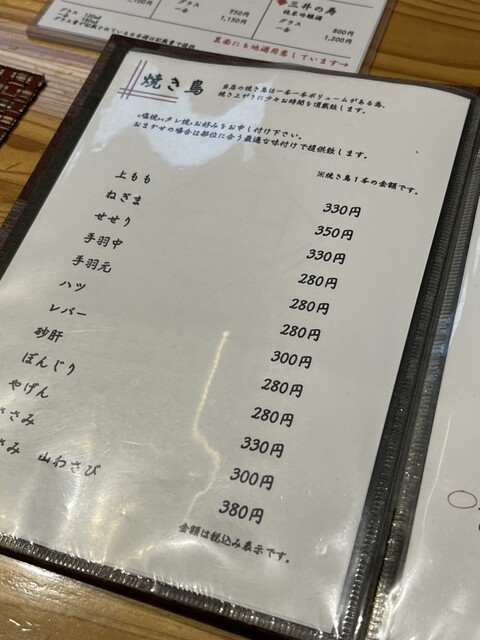 グラス 750円
一合 1,150円
三井の寿
純米吟醸酒
グラス 800円
一合 1,200円
裏面にも地酒用意しています→
焼き鳥
当店の焼き鳥は一本一本ボリュームがある為、
焼き上がりに少々お時間を頂戴致します。
"塩焼""タレ焼"お好みをお申し付け下さい。
おまかせの場合は部位に合う最適な味付けで提供致します。
※焼き鳥1本の金額です。
上もも 330円
ねぎま 350円
せせり 330円
手羽中 280円
手羽元 280円
ハツ 280円
レバー 300円
砂肝 280円
ぼんじり 280円
やげん 330円
ささみ 300円
さみ 山わさび 380円
金額は税込み表示です。